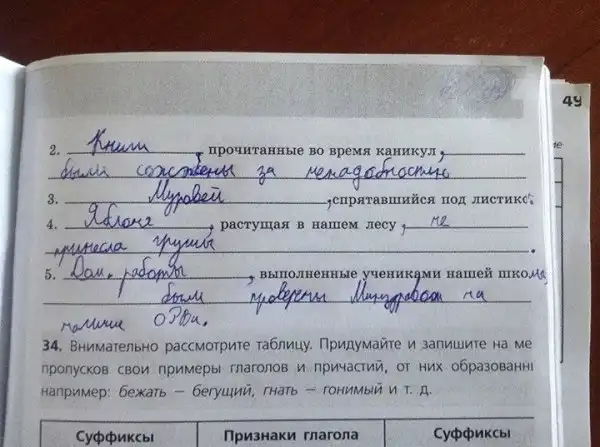 49
2. Книги, прочитанные во время каникул,
были сожжены за ненадобностью
3. Муравей, спрятавшийся под листико
4. Яблоня, растущая в нашем лесу, не
принесла грушы.
5. Дом. работы, выполненные учениками нашей школы,
были проверены Минздравом на
наличие ОРВи.
34. Внимательно рассмотрите таблицу. Придумайте и запишите на ме
пропусков свои примеры глаголов и причастий, от них образованн
например: бежать — бегущий, гнать — гонимый и т. д.
Суффиксы Признаки глагола Суффиксы